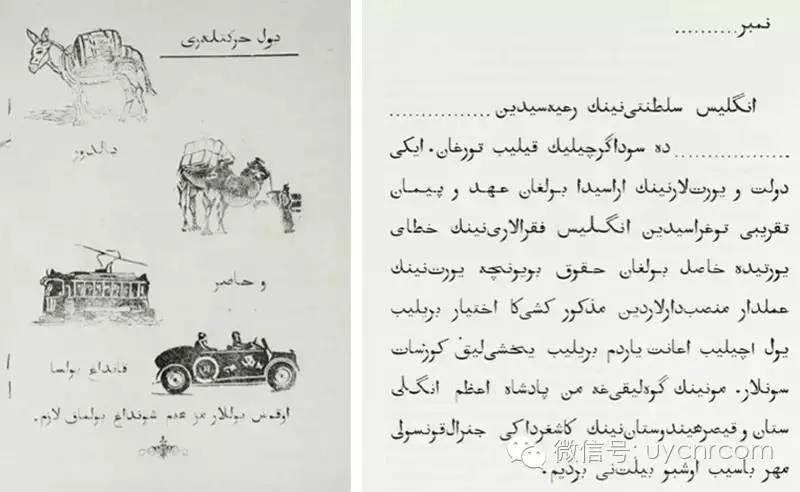 يول حركتلەرى
يالدور
و حاضر
قانداغ بولسا
اوقوش يوللار مز هم شونداغ بولماق لازم.
نمبر ..........
انگليس سلطنتى‌نينك رعيه‌سيدين ................
................ ده سوداگرچيليك قيليب تورغان. ايكى
دولت و يورت‌لارنينك اراسيدا بولغان عهد و پيمان
تقريبى توغراسيدين انگليس فقرالارى‌نينك خطاى
يورتيده خاصل بولغان حقوق بويونچه يورت‌نينك
عملدار منصب‌دارلاردين مذكور كشى‌كا اختيار بريليب
يول اچيليب اعانت ياردم بريليب يخشى‌ليق كورسات
سونلار. مونينك گوه‌ليقى‌غه من پادشاه اعظم انگلى
ستان و قيصر هيندوستان‌نينك كاشغرداكى جنرال‌قونسولى
مهر باسيب اوشبو بيلت‌نى برديم.
微信号: uychrcom